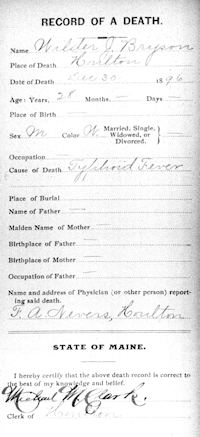 RECORD OF A DEATH.
Name, Webster J. Bryson
Place of Death Houlton
Date of Death Dec 30 1896
Age: Years, 28 Months, — Days —
Place of Birth —
Sex M Color W Married, Single, Widowed, or Divorced.
Occupation —
Cause of Death Typhoid Fever
Place of Burial —
Name of Father —
Maiden Name of Mother —
Birthplace of Father —
Birthplace of Mother —
Occupation of Father —
Name and address of Physician (or other person) report-
ing said death.
F. A. Nevers, Houlton
STATE OF MAINE.
I hereby certify that the above death record is correct to
the best of my knowledge and belief.
Michael M. Clark.
Clerk of Houlton